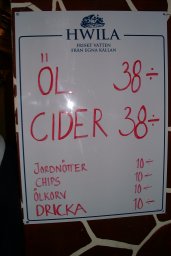 HWILA
FRISKT VATTEN
FRÅN EGNA KÄLLAN
ÖL 38÷
CIDER 38÷
JORDNÖTTER 10÷
CHIPS 10÷
ÖLKORV 10÷
DRICKA 10÷